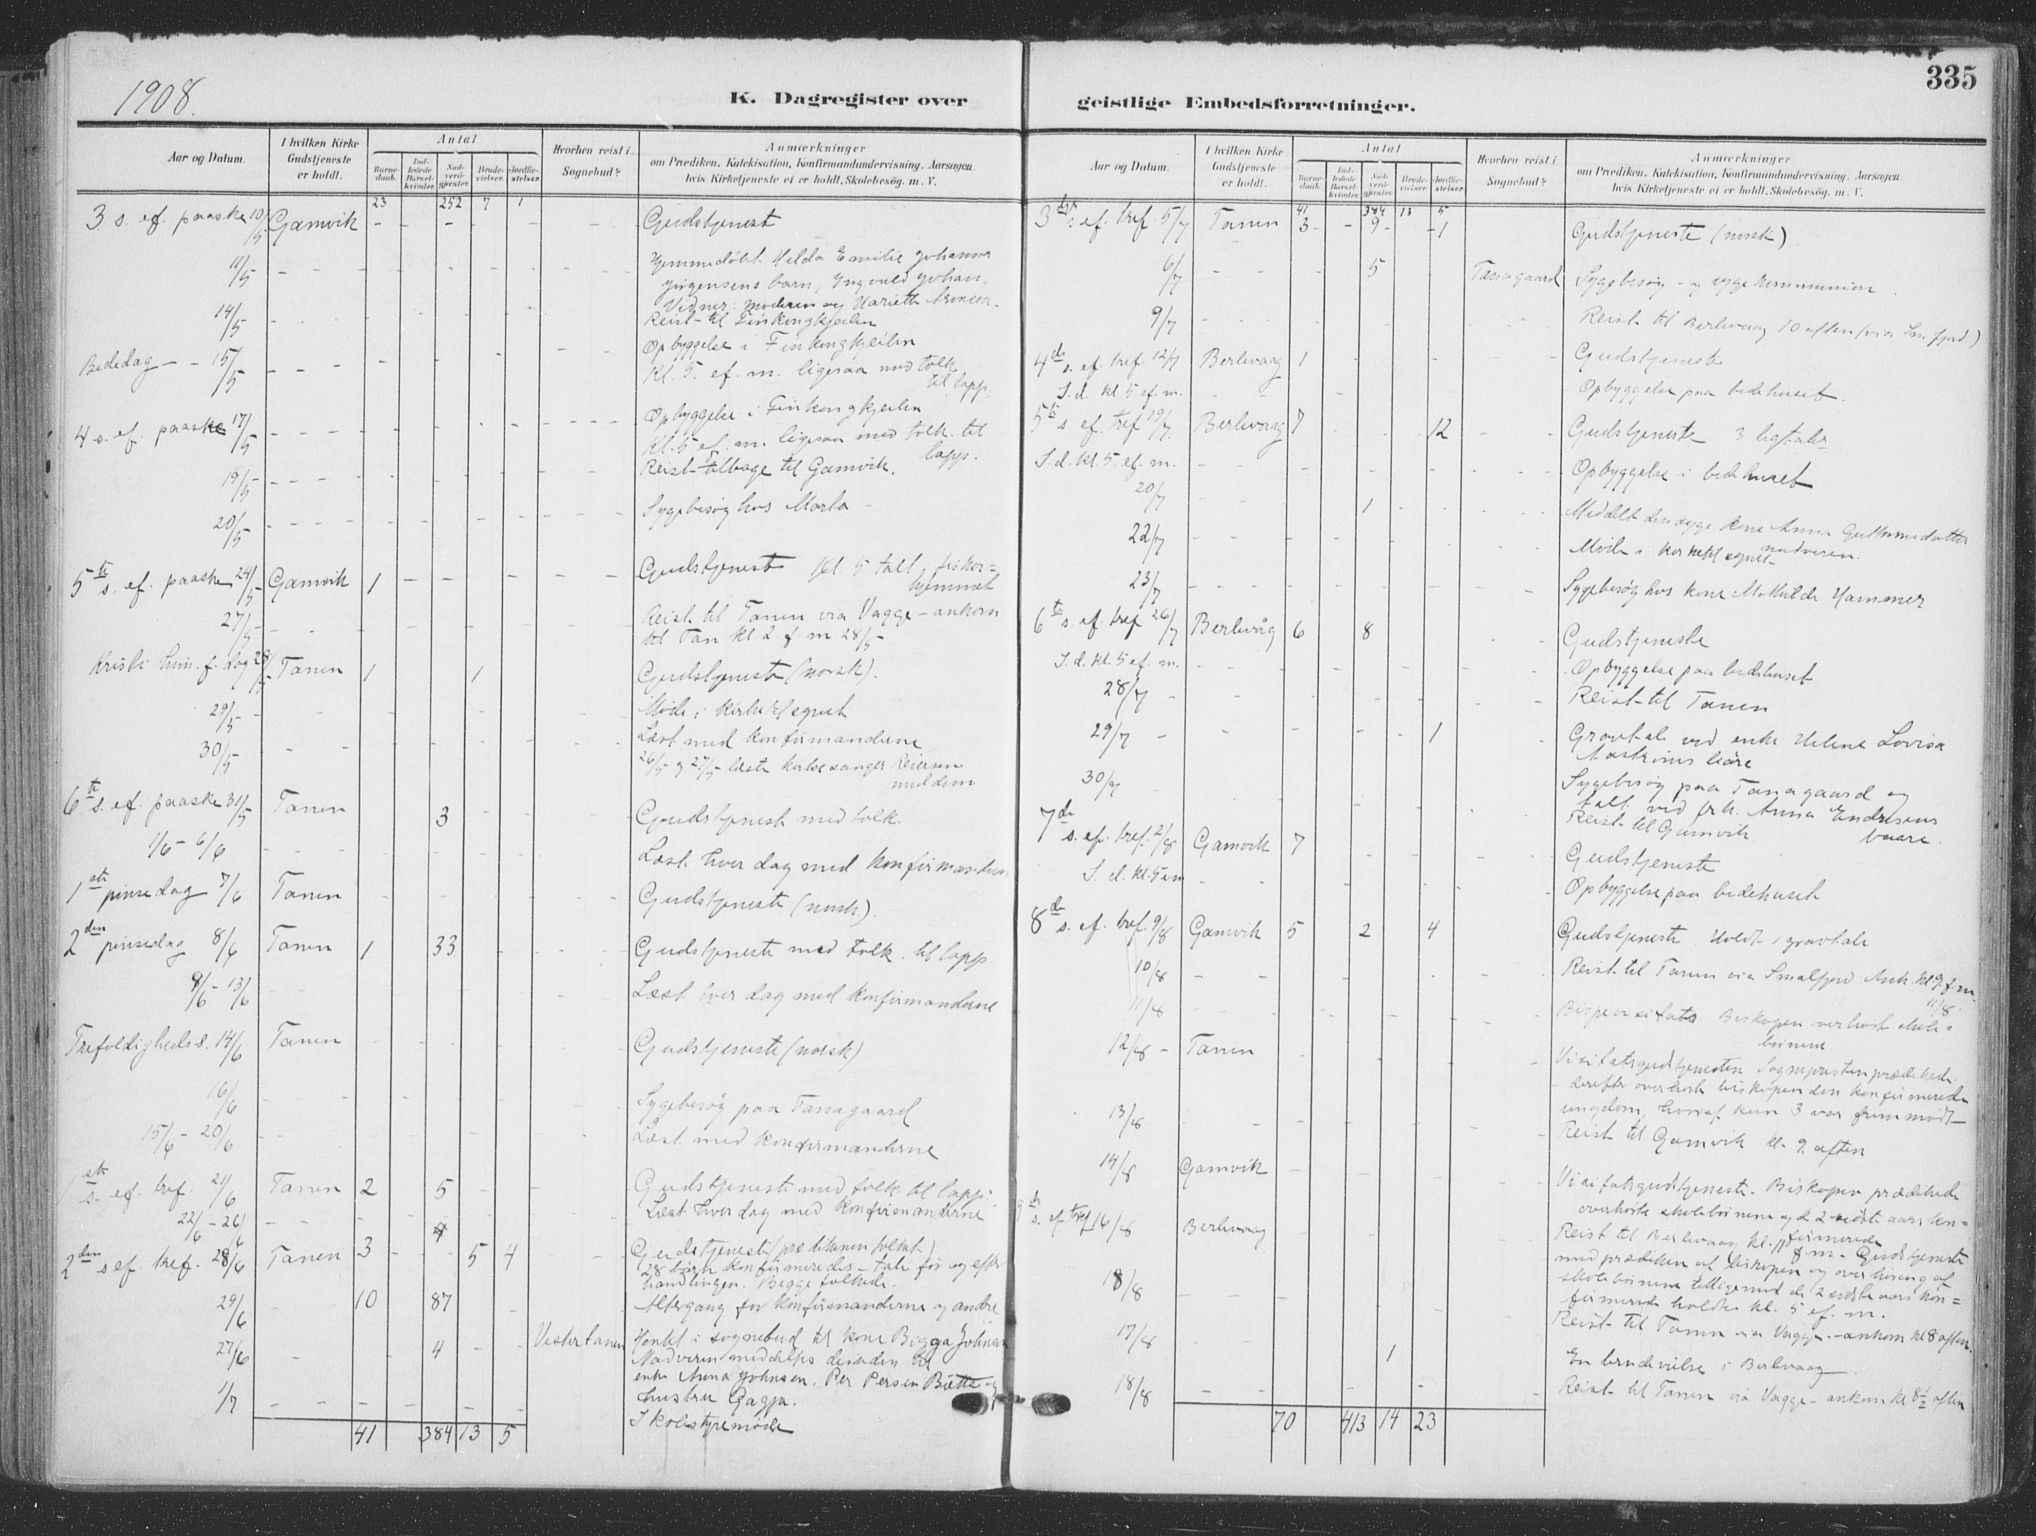 1908.
K. Dagregister over
Aar og Datum.
I hvilken Kirke Gudstjeneste er holdt.
Antal
Barnedaab.
Indledede Barselkvinder.
Nadverdgjester
Brudevielser.
Jordfæstelser.
Hvorhen reist i Sognebud?
Anmærkninger
om Prædiken, Katekisation, Konfirmandundervisning, Aarsagen
hvis Kirketjeneste ei er holdt, Skolebesøg. m. V.
23 252 7 1
3 s. ef. paaske 10/5 Gamvik - - - - - - Gudstjenest
11/5 - - - - - - Hjemmedøbt Hilda Emilie Johanna
Jørgensens barn, Ingvald Johan.
Vidner: Moderen og Mariette
14/5 Reist til Finkongkjeilen
Bededag - - 15/5 - Opbyggelse i Finkongkjeilen
Kl. 5 ef. m. ligesaa med tolk
til lapp.
4 s. ef. paaske 17/5 - Opbyggelse i Finkongkjeilen
Kl. 5 ef. m. ligesaa med tolk til
lapp.
19/5 - Reist tilbage til Gamvik.
20/5 - Sygebesøg hos Marta -
5te s. ef. paaske 24/5 Gamvik 1 - - - - Gudstjenest Kl. 5 talt i fisker=
hjemmet
27/5 - Reist til Tanen via Vagge - ankom
til Tan kl 2 f m 28/5 -
Kristi him. f. dag 28/5 Tanen 1 1 Gudstjeneste (norsk).
29/5 - Møde i kirketilsynet
30/5 - Læst med konfirmanderne
26/5 og 27/5 læste kirkesanger Reiersen
med dem
6te s. ef. paaske 31/5 Tanen 3 Gudstjenest med tolk.
1/6 - 6/6 Læst hver dag med konfirmanderne
1ste pinsedag 7/6 Tanen Gudstjeneste (norsk).
2den pinsedag 8/6 Tanen 1 33 Gudstjeneste med tolk. til lapp.
8/6 - 13/6 Læst hver dag med konfirmanderne
Trefoldigheds s. 14/6 Tanen Gudstjeneste (norsk)
16/6 Sygebesøg paa Tanagaard
15/6 - 20/6 Læst med konfirmanderne
1ste s. ef. tref. 21/6 Tanen 2 5 Gudstjeneste med tolk til lapp.
22/6 - 26/6 Læst hver dag med konfirmanderne
2den s ef. tref. 28/6 Tanen 3 5 4 Gudstjeneste (prædikenen tolket)
28 børn konfirmeredes - tale før og efter
handlingen. Begge tolkede.
29/6 10 87 Altergang for konfirmanderne og andre
27/6 4 Vestertanen Hentet i sognebud til kone Bigga Johnsen
Nadveren meddeltes desuden til
enke Anna Johnsen. Per Persen og
hustru Gagja.
1/7 - - - - - Skolestyremøde
41 384 13 5
geistlige Embedsforretninger.
335
Aar og Datum.
I hvilken Kirke Gudstjeneste er holdt.
Antal
Barnedaab.
Indledede Barselkvinder.
Nadverdgjester
Brudevielser.
Jordfæstelser.
Hvorhen reist i Sognebud?
Anmærkninger
om Prædiken, Katekisation, Konfirmandundervisning, Aarsagen
hvis Kirketjeneste ei er holdt, Skolebesøg. m. V.
41 384 13 5
3die s. ef. tref. 5/7 Tanen 3 - - 9 - - 1 Gudstjeneste (norsk)
6/7 - - 5 Tanagaard Sygebesøg - og sygekommunion
9/7 Reist til Berlevaag 10 aften (via fjord)
4de s. ef. tref. 12/7 Berlevaag 1 Gudstjeneste
S. d. kl 5 ef. m. - Opbyggelse paa bedehuset.
5te s. ef. tref 19/7 Berlevaag 7 12 Gudstjeneste 3 ligtaler
S. d. kl. 5. ef. m. Opbyggelse i bedehuset
20/7 1 Meddelt den syge kone Anna Guttormsdatter
nadveren.
22/7 Møde i kirketilsynet
23/7 Sygebesøg hos kone Mathilde Hammer
6te s. ef. tref 26/7 Berlevåg 6 8 Gudstjeneste
S. d. kl. 5 ef. m. Opbyggelse paa bedehuset
28/7 - Reist til Tanen
29/7 - 1 Gravtale ved enke Helene Lovisa
baare
30/7 Sygebesøg paa Tanagaard og
talt ved frk. Anna Endresens
baare.
Reist til Gamvik
7de s. ef. tref. 2/8 Gamvik 7 Gudstjeneste
S. d. kl. 5 em Opbyggelse paa bedehuset
8de s. ef. tref. 9/8 Gamvik 5 2 4 Gudstjeneste. Holdt 1 gravtale
10/8 Reist til Tanen via Smalfjord Ank. kl 9 f. m.
11/8.
11/8 Bispevisitats. Biskopen overhørt skole=
børnene
12/8 - Tanen Visitatsgudstjenesten. Sognepresten prædikede
derefter overhørte biskopen den konfirmerede
ungdom, hvoraf kun 3 var fremmødt
13/8 Reist til Gamvik kl. 9 aften
14/8 Gamvik Visitatsgudstjeneste. Biskopen prædikede
overhørte skolebørnene og de 2 sidste aars kon=
firmerede
9de s. ef. tref 16/8 Berlevaag Reist til Berlevaag kl. 11 f. m. Gudstjeneste
med prædiken af biskopen og overhøring af
skolebørnene tilligemed de 2 sidste aars kon=
firmerede holdtes kl. 5 ef. m.
18/8
17/8 Reist til Tanen via Vagge. - ankom kl 8 aften.
1 En brudevielse i Berlevaag
18/8 Reist til Tanen via Vagge - ankom kl 8½ aften
70 413 14 23